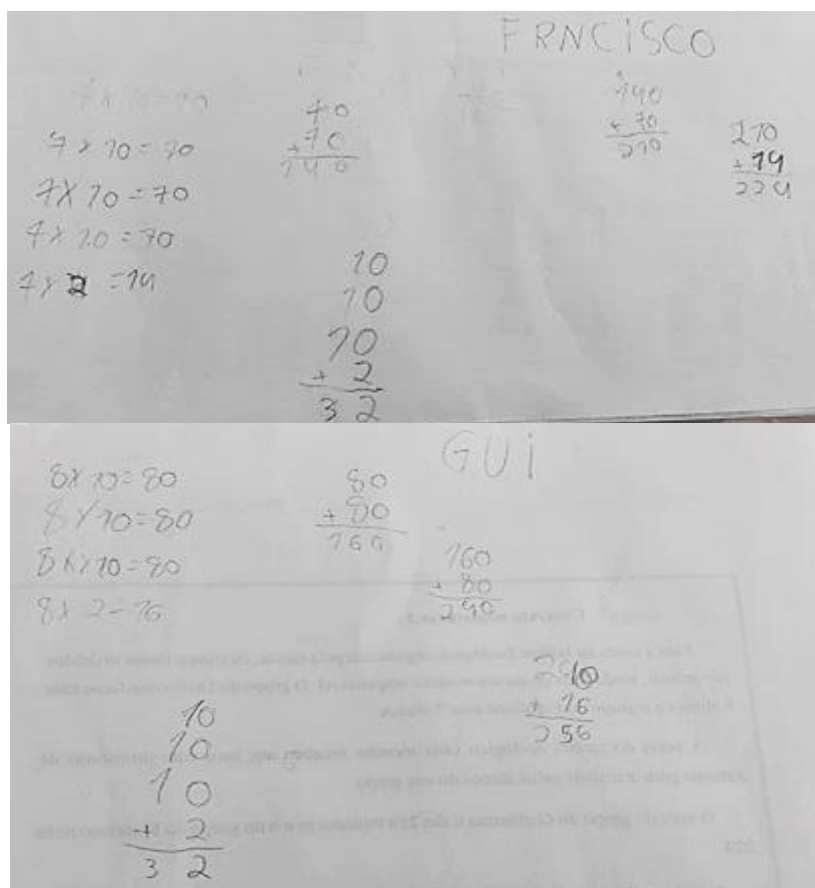 FRNCISCO
7 x 10 = 70
7 x 10 = 70
7 x 10 = 70
7 x 10 = 70
7 x 2 = 14
70
+ 70
140
140
+ 70
210
210
+ 14
224
10
10
10
+ 2
32
GUI
8 x 10 = 80
8 x 10 = 80
8 x 10 = 80
8 x 2 = 16
80
+ 80
160
160
+ 80
240
240
+ 16
256
10
10
10
+ 2
32